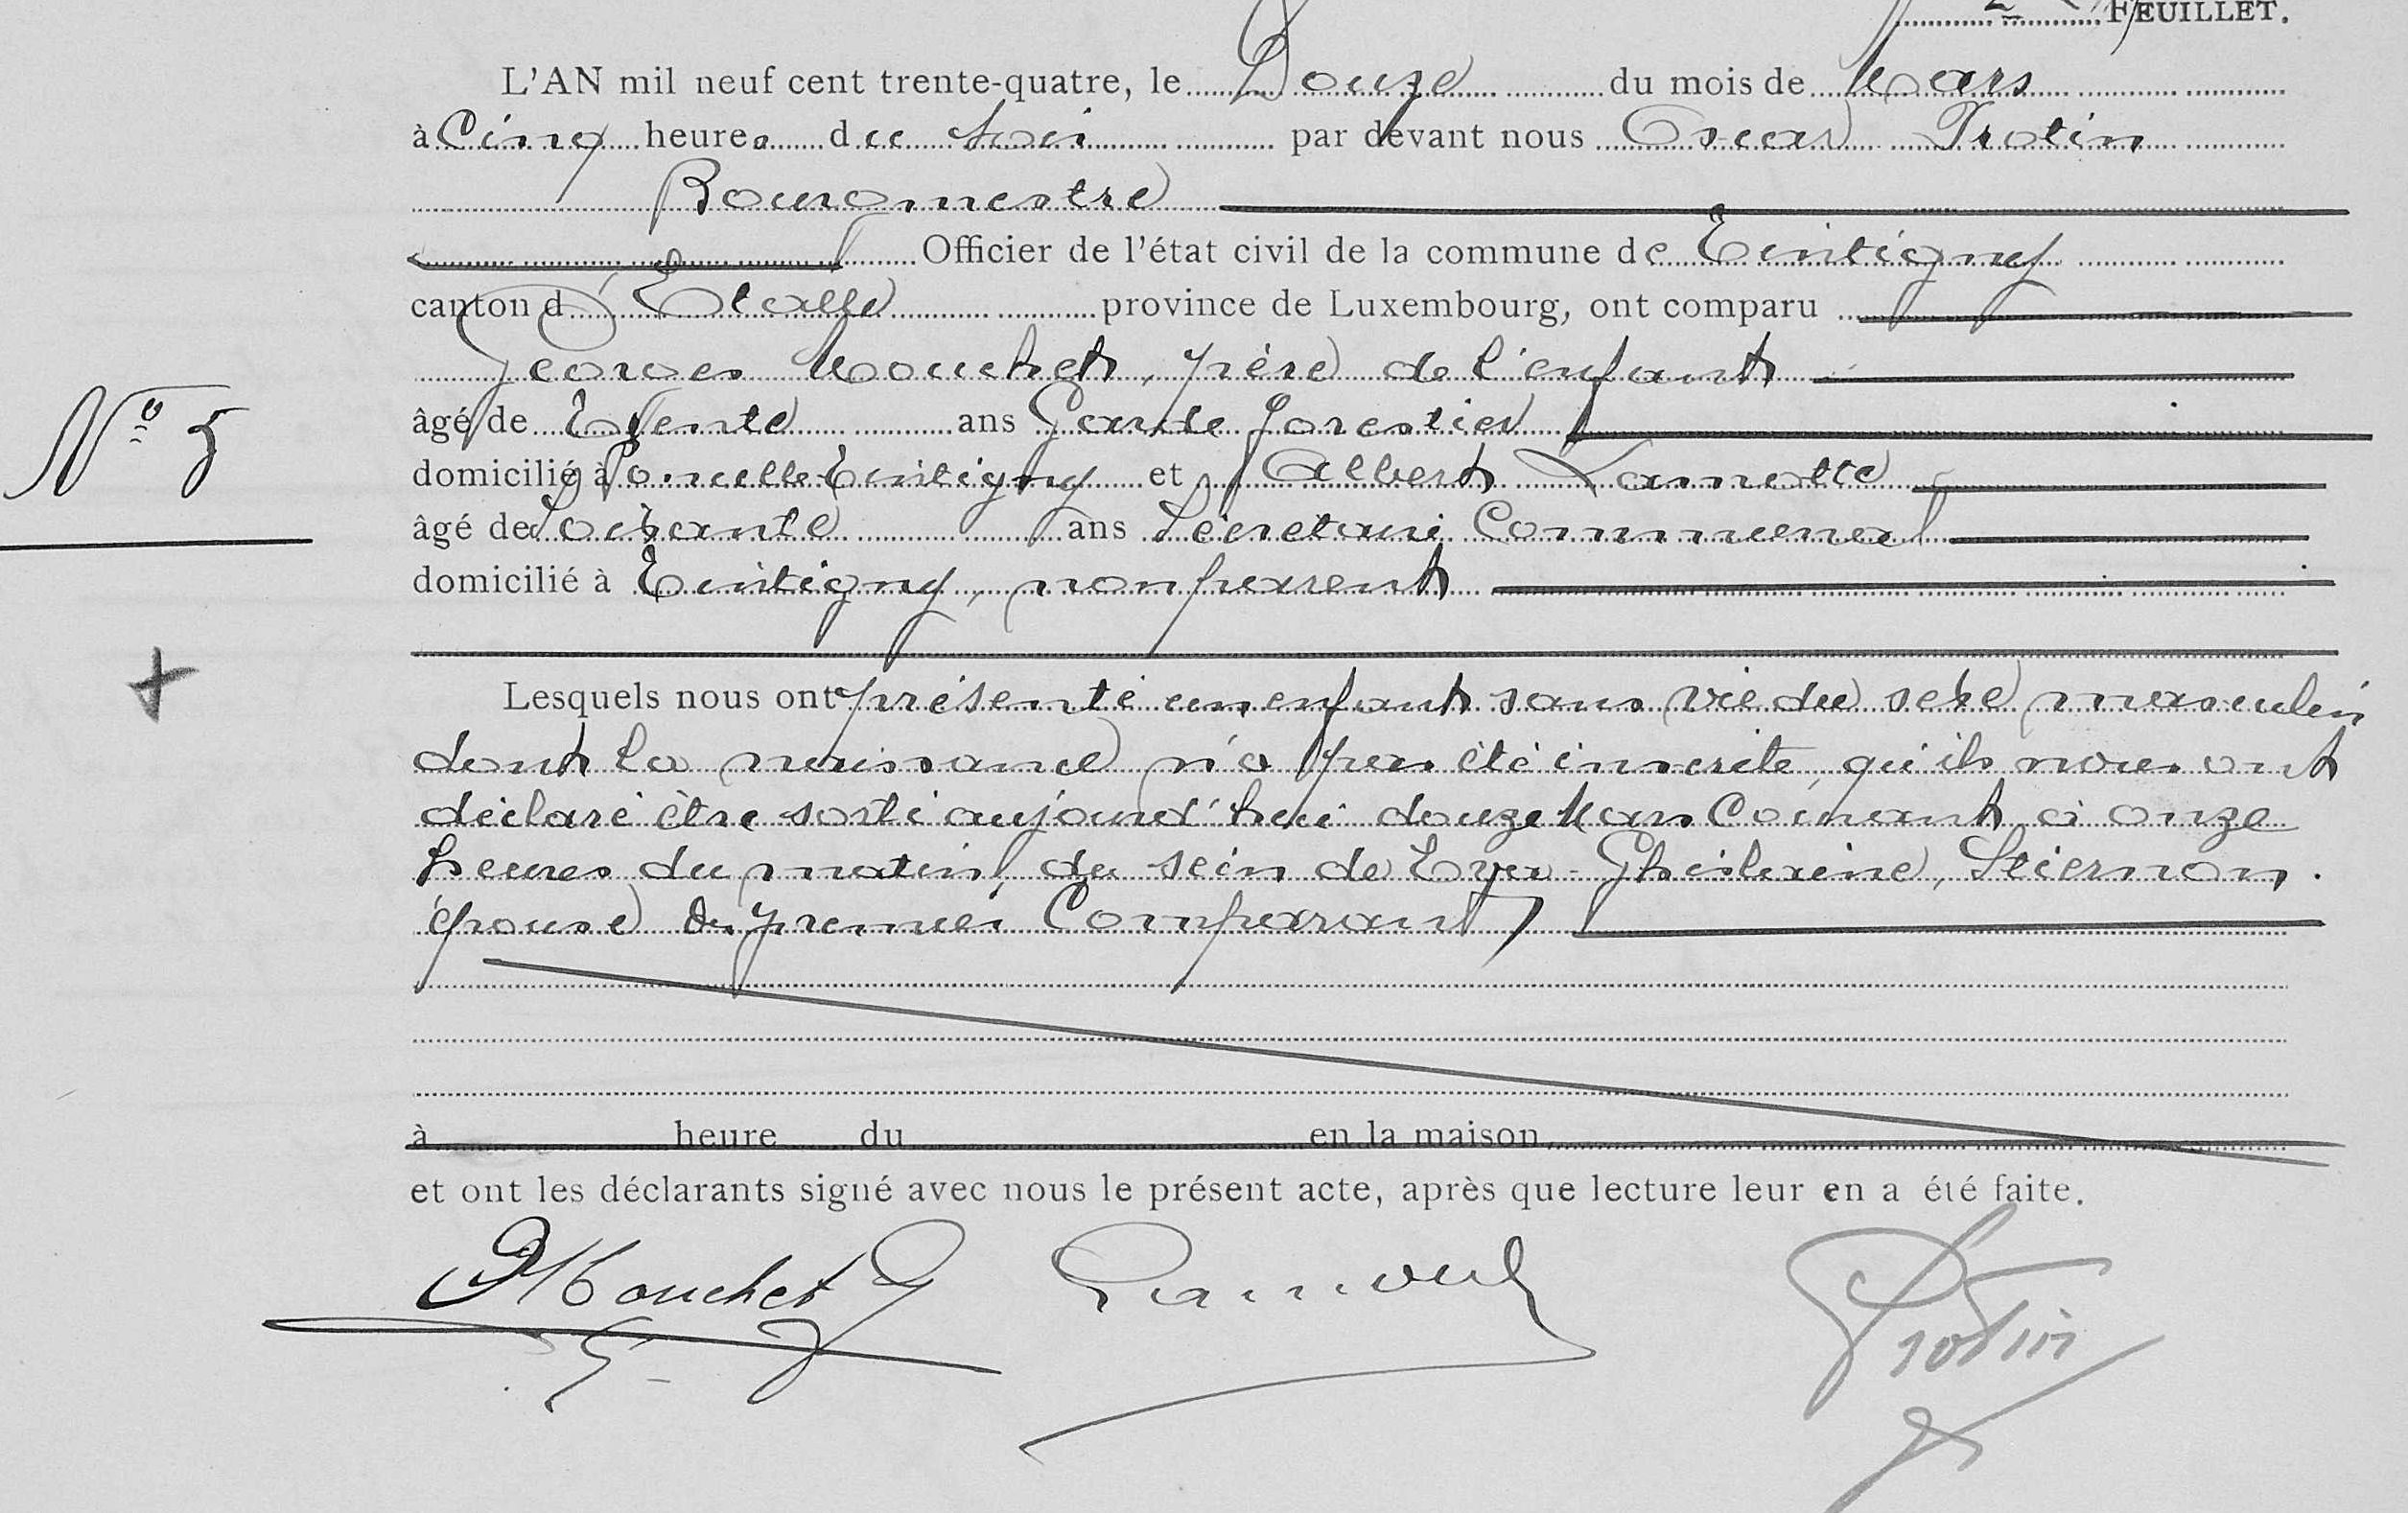 FEUILLET.
L'AN mil neuf cent trente-quatre, le Douze du mois de Mars
à Cinq heures du soir par devant nous Oscar Protin
Bourgmestre
Officier de l'état civil de la commune de Tintigny
canton d'Etalle province de Luxembourg, ont comparu
Georges Mouchet, père de l'enfant
Nº 5
âgé de trente ans Garde forestier
domicilié à Poncelle-Tintigny et Albert Lamotte
âgé de Soixante ans Secrétaire Communal
domicilié à Tintigny, non parent
Lesquels nous ont présenté un enfant sans vie du sexe masculin
dont la naissance n'a pas été inscrite, qu'ils nous ont
déclaré être sorti aujourd'hui douze Mars Courant à onze
heures du matin, du sein de Ghislaine, Stiernon.
épouse du premier Comparant,
à heure du en la maison
et ont les déclarants signé avec nous le présent acte, après que lecture leur en a été faite.
Mouchet G Lamotte Protin